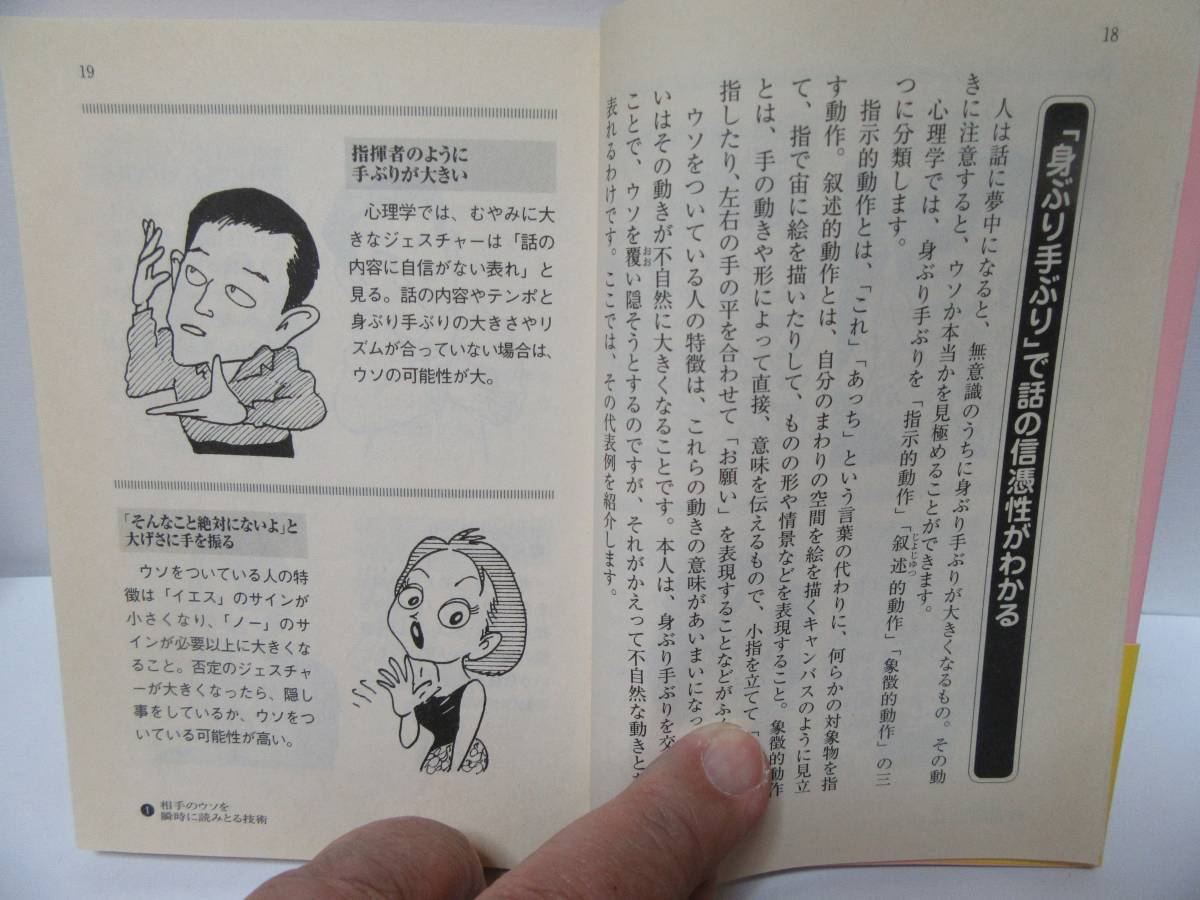 18
「身ぶり手ぶり」で話の信憑性がわかる
人は話に夢中になると、無意識のうちに身ぶり手ぶりが大きくなるもの。その動
きに注意すると、ウソか本当かを見極めることができます。
心理学では、身ぶり手ぶりを「指示的動作」「叙述的動作」「象徴的動作」の三
じょじゅつ
つに分類します。
指示的動作とは、「これ」「あっち」という言葉の代わりに、何らかの対象物を指
す動作。叙述的動作とは、自分のまわりの空間を絵を描くキャンバスのように見立
て、指で宙に絵を描いたりして、ものの形や情景などを表現すること。象徴的動作
とは、手の動きや形によって直接、意味を伝えるもので、小指を立てて「
指したり、左右の手の平を合わせて「お願い」を表現することなどがふ
ウソをついている人の特徴は、これらの動きの意味があいまいになっ
いはその動きが不自然に大きくなることです。本人は、身ぶり手ぶりを交
ことで、ウソを覆い隠そうとするのですが、それがかえって不自然な動きと
おお
表れるわけです。ここでは、その代表例を紹介します。
19
指揮者のように
手ぶりが大きい
心理学では、むやみに大
きなジェスチャーは「話の
内容に自信がない表れ」と
見る。話の内容やテンポと
身ぶり手ぶりの大きさやリ
ズムが合っていない場合は、
ウソの可能性が大。
「そんなこと絶対にないよ」と
大げさに手を振る
ウソをついている人の特
徴は「イエス」のサインが
小さくなり、「ノー」のサ
インが必要以上に大きくな
ること。否定のジェスチャ
ーが大きくなったら、隠し
事をしているか、ウソをつ
いている可能性が高い。
❶ 相手のウソを
瞬時に読みとる技術